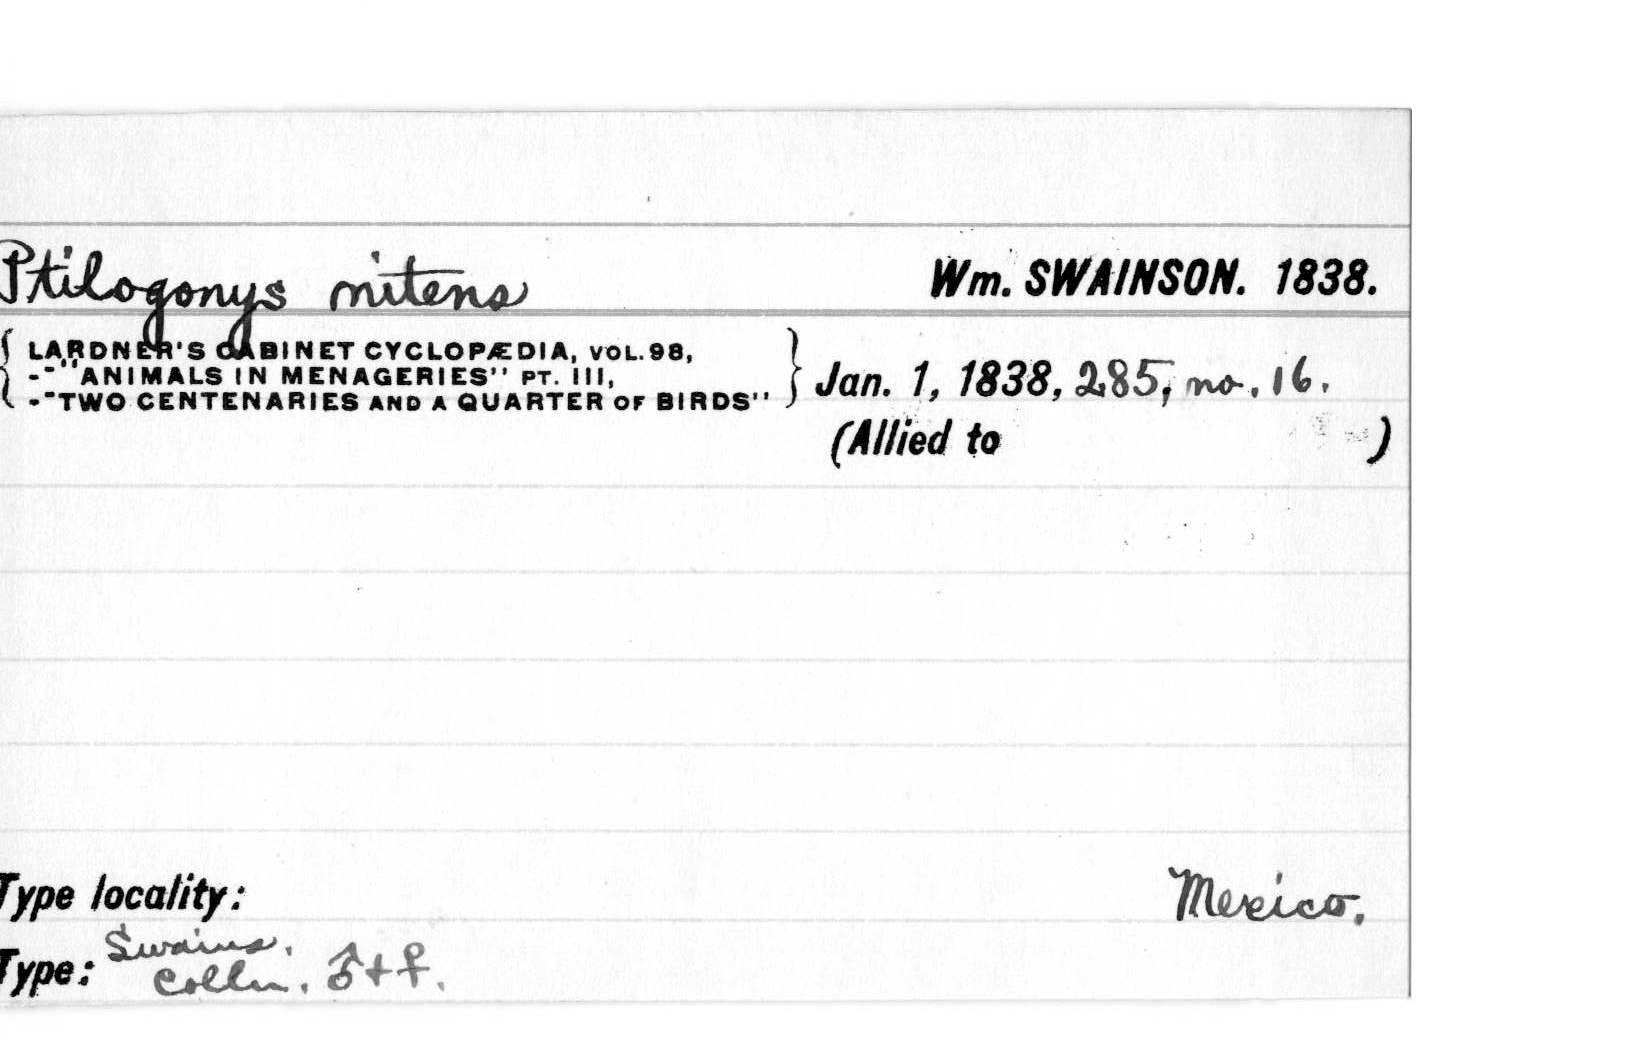 Ptilogonys nitens Wm. SWAINSON. 1838.
LARDNER'S CABINET CYCLOPÆDIA, VOL. 98,
-"ANIMALS IN MENAGERIES" PT. III,
-"TWO CENTENARIES AND A QUARTER OF BIRDS"
Jan. 1, 1838, 285, no. 16.
(Allied to )
Type locality: Mexico.
Swains.
Type: Colln. ♂ + ♀.